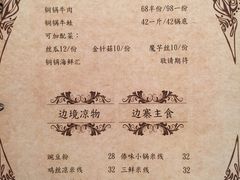 铜锅牛肉 68半份/98一份
铜锅牛蛙 42一斤/42锅底
可加配菜：
丝瓜12/份 金针菇10/份 魔芋丝10/份
铜锅海鲜汇 敬请期待
边境凉物 边寨主食
豌豆粉 28 傣味小锅米线 32
鸡丝凉米线 32 三鲜米线 32